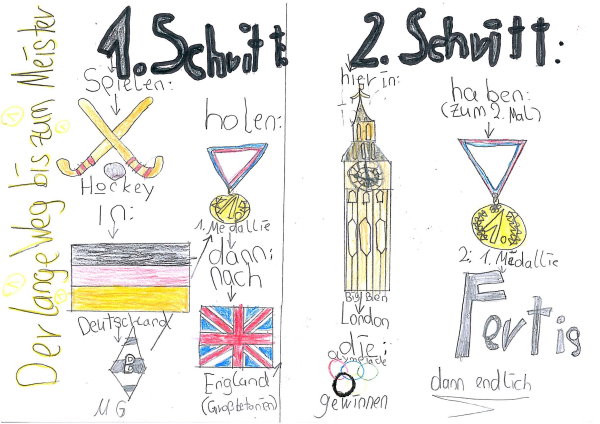 Der lange Weg bis zum Meister
1. Schritt:
Spielen:
Hockey
in:
Deutschland
MG
holen:
1.
1. Medallie
dann:
nach
England
(Großbetanien)
2. Schritt:
hier in:
Big Bien
London
die:
gewinnen
haben:
(zum 2. Mal)
1.
2: 1. Medallie
Fertig
dann endlich